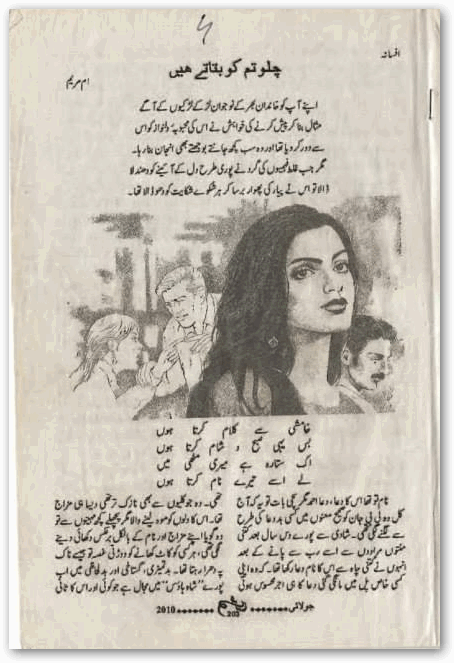 افسانہ
چلو تم کو بتاتے ھیں
ام مریم
اپنے آپ کو خاندان بھر کے نوجوان لڑکے لڑکیوں کے آگے
مثال بنا کر پیش کرنے کی خواہش نے اس کی محبوبہ دلنواز کو اس
سے دور کر دیا تھا اور وہ سب کچھ جانتے بوجھتے بھی انجان بنا رہا۔
مگر جب غلط فہمیوں کی گرد نے پوری طرح دل کے آئینے کو دھندلا
ڈالا تو اس نے پیار کی پھوار برسا کر ہر شکوے شکایت کو دھو ڈالا تھا۔
خامشی سے کلام کرتا ہوں
بس یہی صبح و شام کرتا ہوں
اک ستارہ ہے میری مٹھی میں
لے اسے تیرے نام کرتا ہوں
نام تو تھا اس کا دعا، دعا احمد مگر سچی بات تو یہ کہ آج
کل وہ بی بی جان کو صحیح معنوں میں کسی بددعا کی طرح
سے لگنے لگی تھی۔ شادی کے پورے دس سال بعد کتنی
منتوں مرادوں سے اسے رب سے پانے کے بعد
انہوں نے کتنی چاہ سے اس کا نام دعا رکھا تھا۔ کہ وہ اپنی
کسی خاص پل میں مانگی گئی دعا کا ہی اجر محسوس ہوئی
تھی۔ وہ جو کلیوں سے بھی نازک تر تھی ویسا ہی مزاج
تھا۔ اس کا دلوں کو موہ لینے والا مگر پچھلے کچھ مہینوں سے تو
وہ گویا اپنے مزاج اور نام کے بالکل برعکس دکھائی دینے
لگی تھی، ہر کسی کو کاٹ کھانے کو دوڑتی، غصہ تو جیسے ناک
پہ دھرا رہتا تھا۔ بدتمیزی، گستاخی اور بدلحاظی میں اب
پورے "شاہ ہاؤس" میں مجال ہے جو کوئی اور اس کا ثانی
جولائی
203
2010